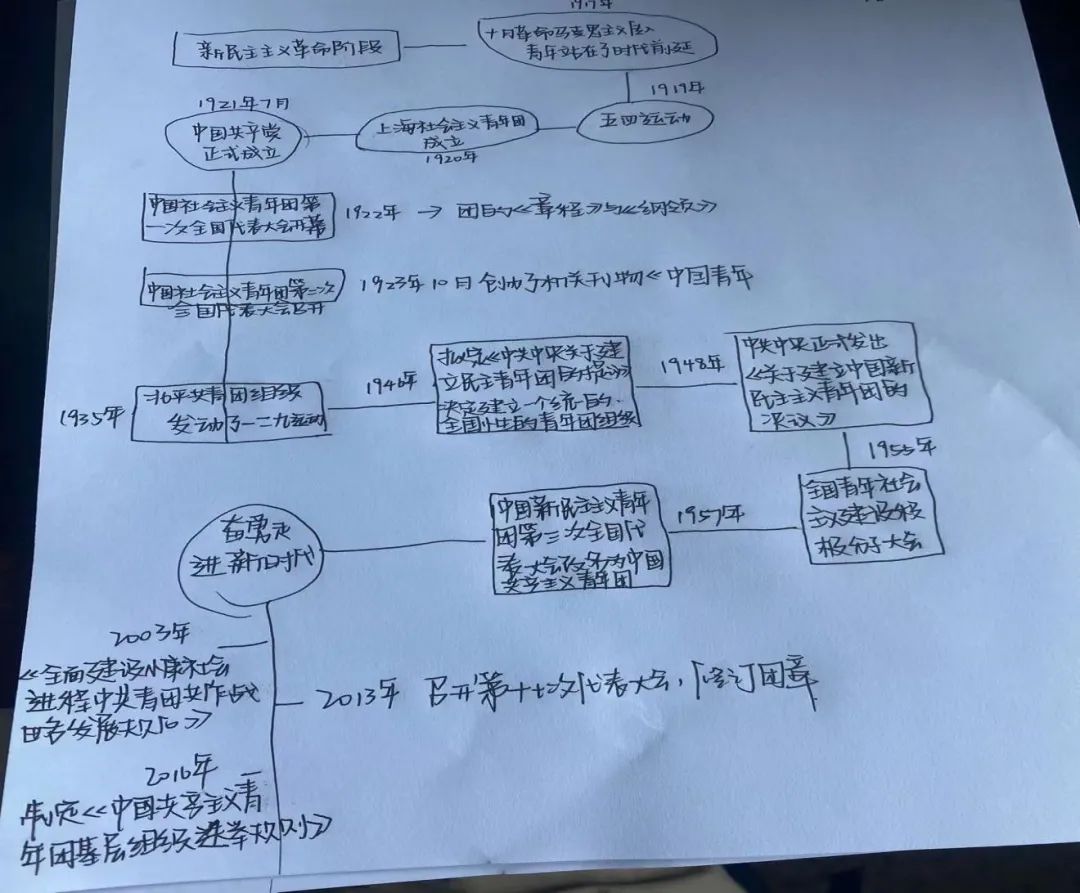 1917年
新民主主义革命阶段
十月革命马克思主义传入
青年站在了时代前延
1919年
五四运动
上海社会主义青年团
成立
1920年
1921年7月
中国共产党
正式成立
中国社会主义青年团第
一次全国代表大会开幕
1922年 → 团的《章程》与《纲领》
中国社会主义青年团第二次
全国代表大会召开
1923年10月 创办了机关刊物《中国青年
1935年
北平共青团组织
发动了一二九运动
1946年
拟定《中共中央关于建
立民主青年团的提议》
决定建立一个统一的、
全国性的青年团组织
1948年
中共中央正式发出
《关于建立中国新
民主主义青年团的
决议》
1955年
全国青年社会
主义建设积
极分子大会
1957年
中国新民主主义青年
团第三次全国代
表大会改名为中国
共产主义青年团
奋勇走
进新时代
2003年
《全面建设小康社会
进程中共青团工作战
略发展规划》
2013年 召开第十七次代表大会，修订团章
2016年
制定《中国共产主义青
年团基层组织选举规则》